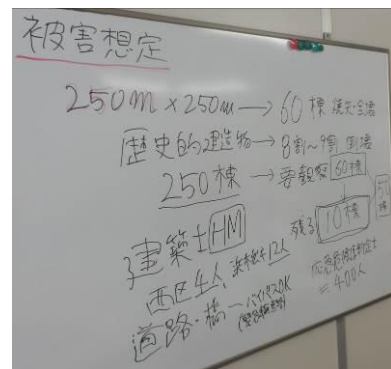 被害想定
250m×250m→60棟 焼失・全壊
歴史的建造物→8割~9割 倒壊
250棟→要観察 60棟
残る 10棟
50棟
建築士 HM
西区4人、浜松市12人
応急危険度判定士
=400人
道路・橋―バイパスOK